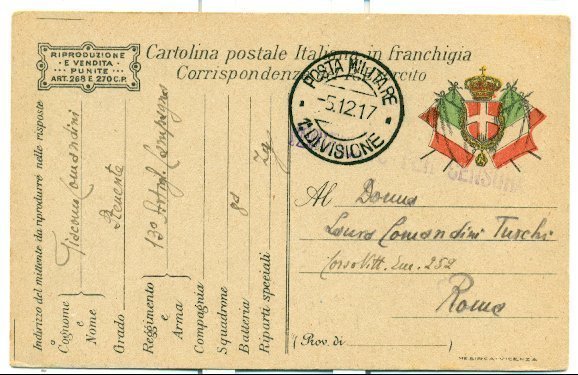 RIPRODUZIONE
E VENDITA
PUNITE
ART. 268 E 270 C.P.
Cartolina postale Italiana in franchigia
Corrispondenza Esercito
POSTA MILITARE
-5.12.17
1ª DIVISIONE
CENSURA
Indirizzo del mittente da riprodursi nelle risposte
Cognome e Nome Giacomo Comandini
Grado Tenente
Reggimento e Arma 13º Artigl. Campagna
Compagnia
Squadrone
Batteria
Riparti speciali
Al Donna
Laura Comandini Turchi
Corso Vitt. Em. 252
Roma
(Prov. di
VICENZA